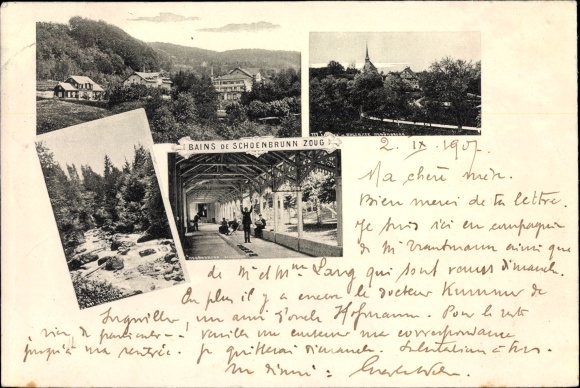 BAINS DE SCHOENBRUNN ZOUG
2. IX. 1907.
Ma chère mère.
Bien merci de ta lettre.
Je suis ici en compagnie
de Mr Trautmann ainsi que
de Mr et Mme Lang qui sont venus dimanche.
En plus il y a encore le docteur Kummer de
un ami d'oncle Hofmann. Pour le reste
rien de particulier!
veuille me
ma correspondance
jusqu'à ma rentrée. Je quitterai dimanche. Salutations à tous.